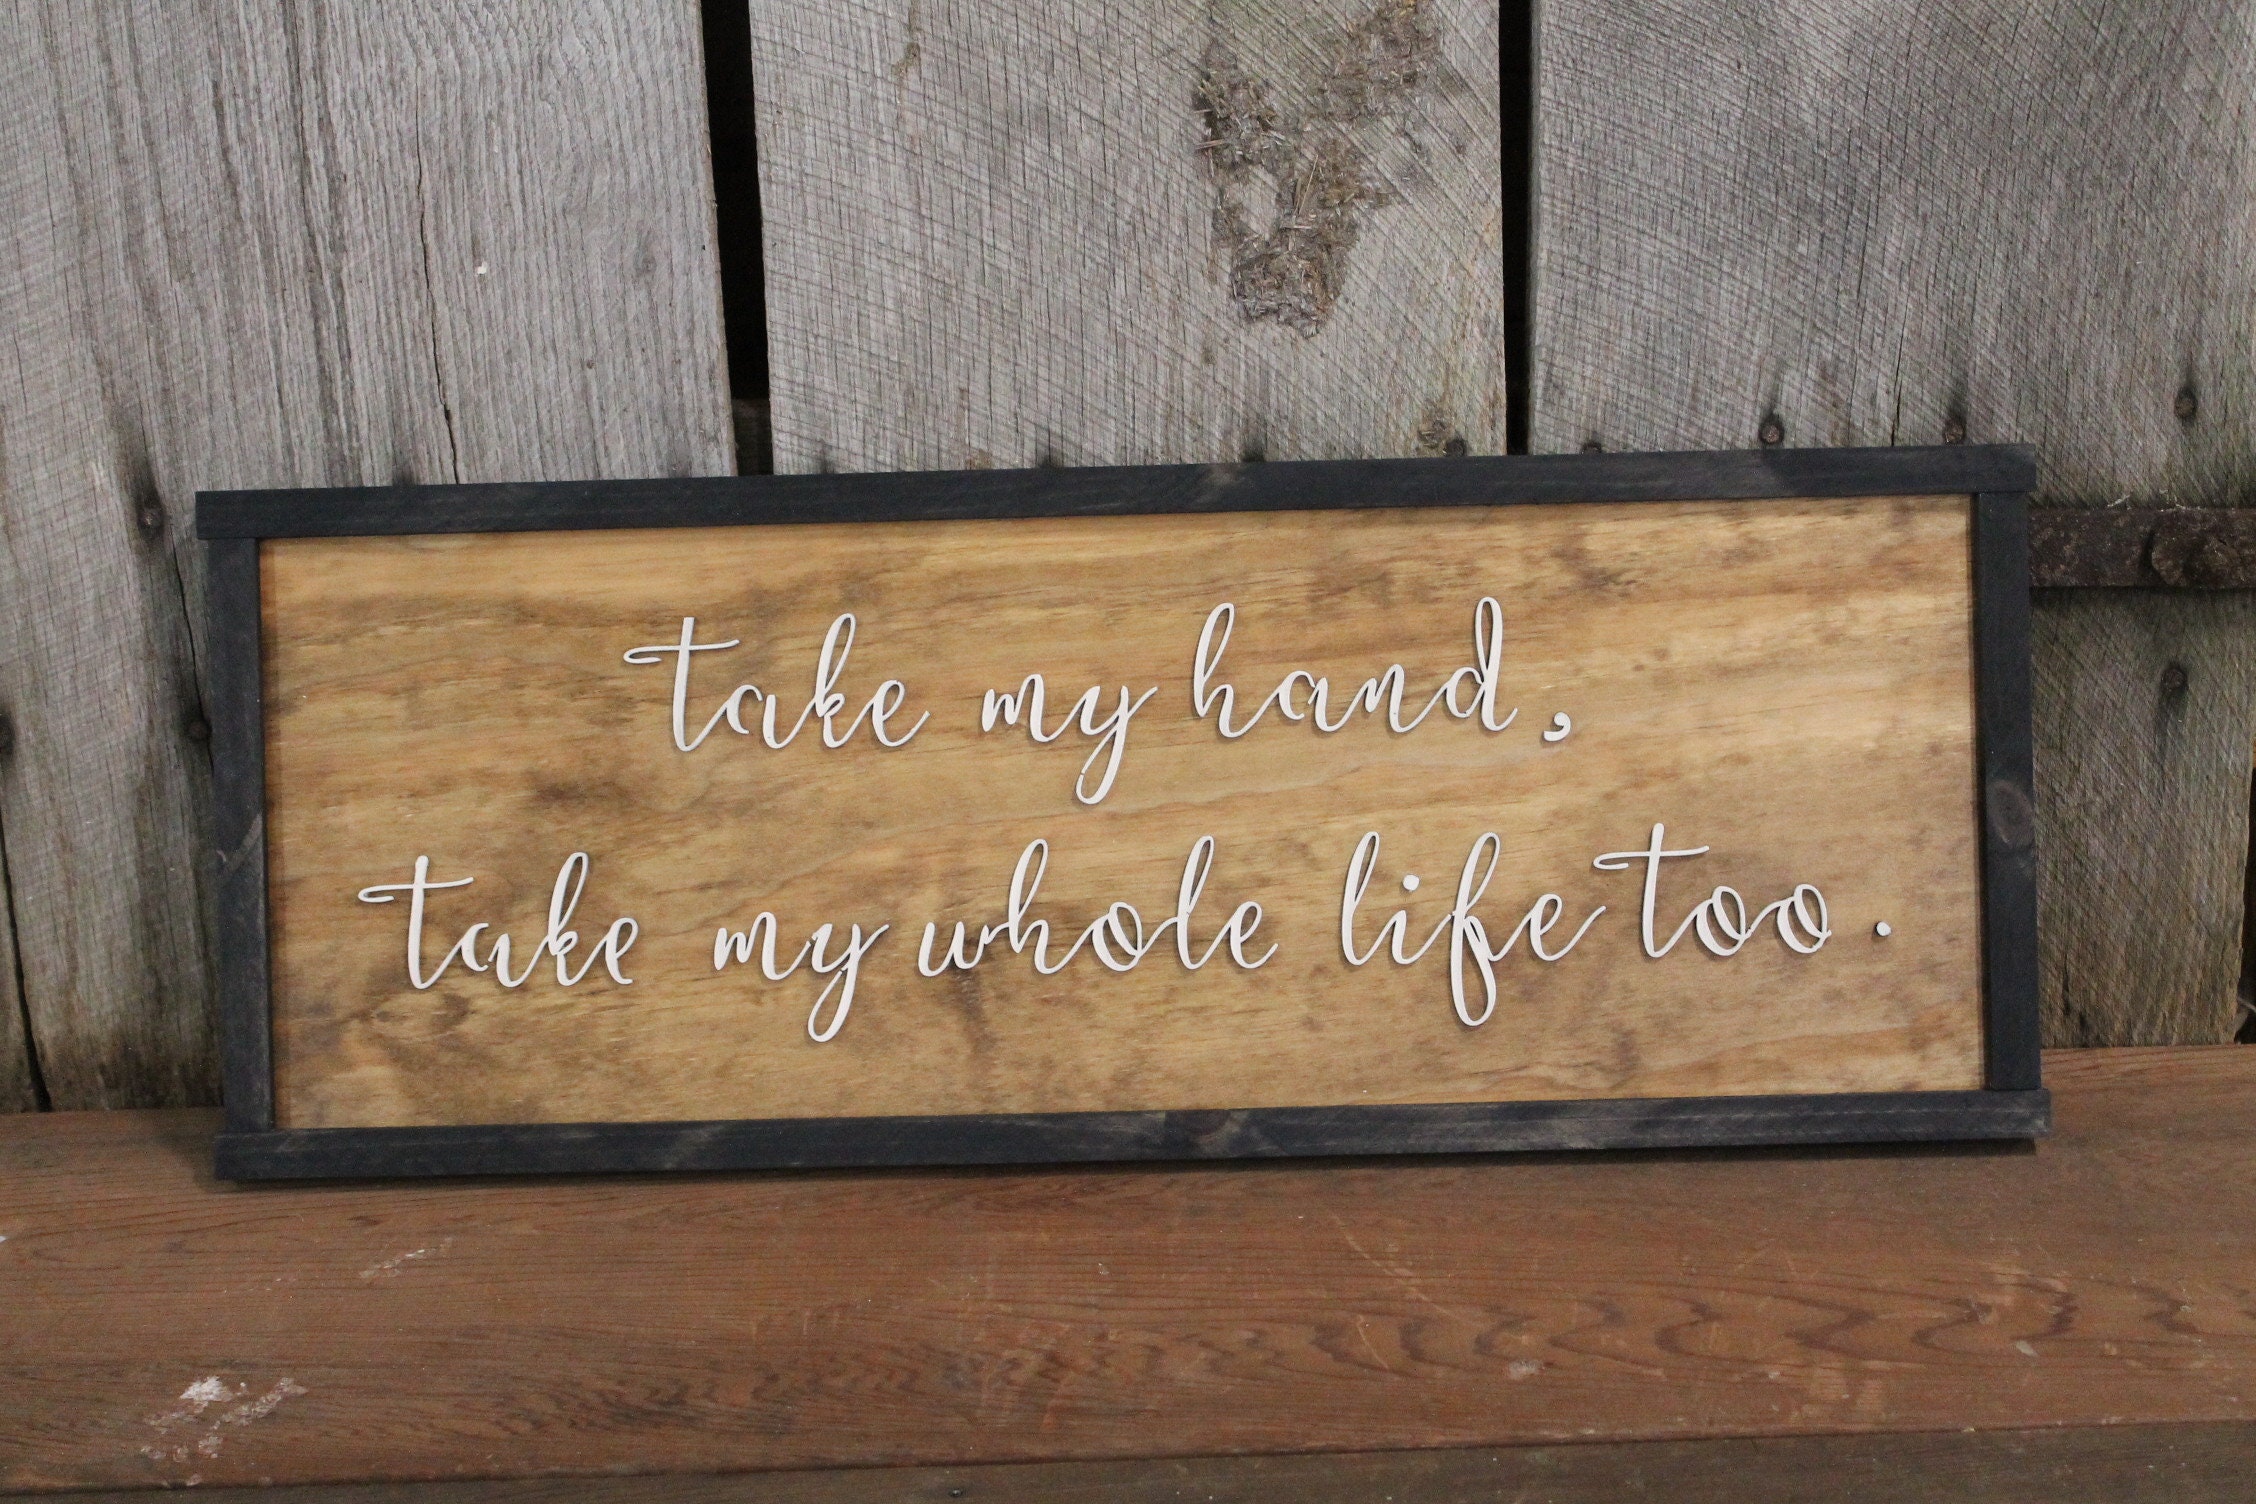 take my hand,
take my whole life too.